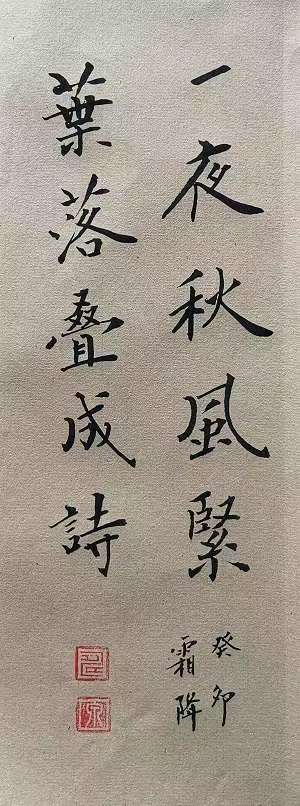 一夜秋風緊
葉落疊成詩
癸卯
霜降